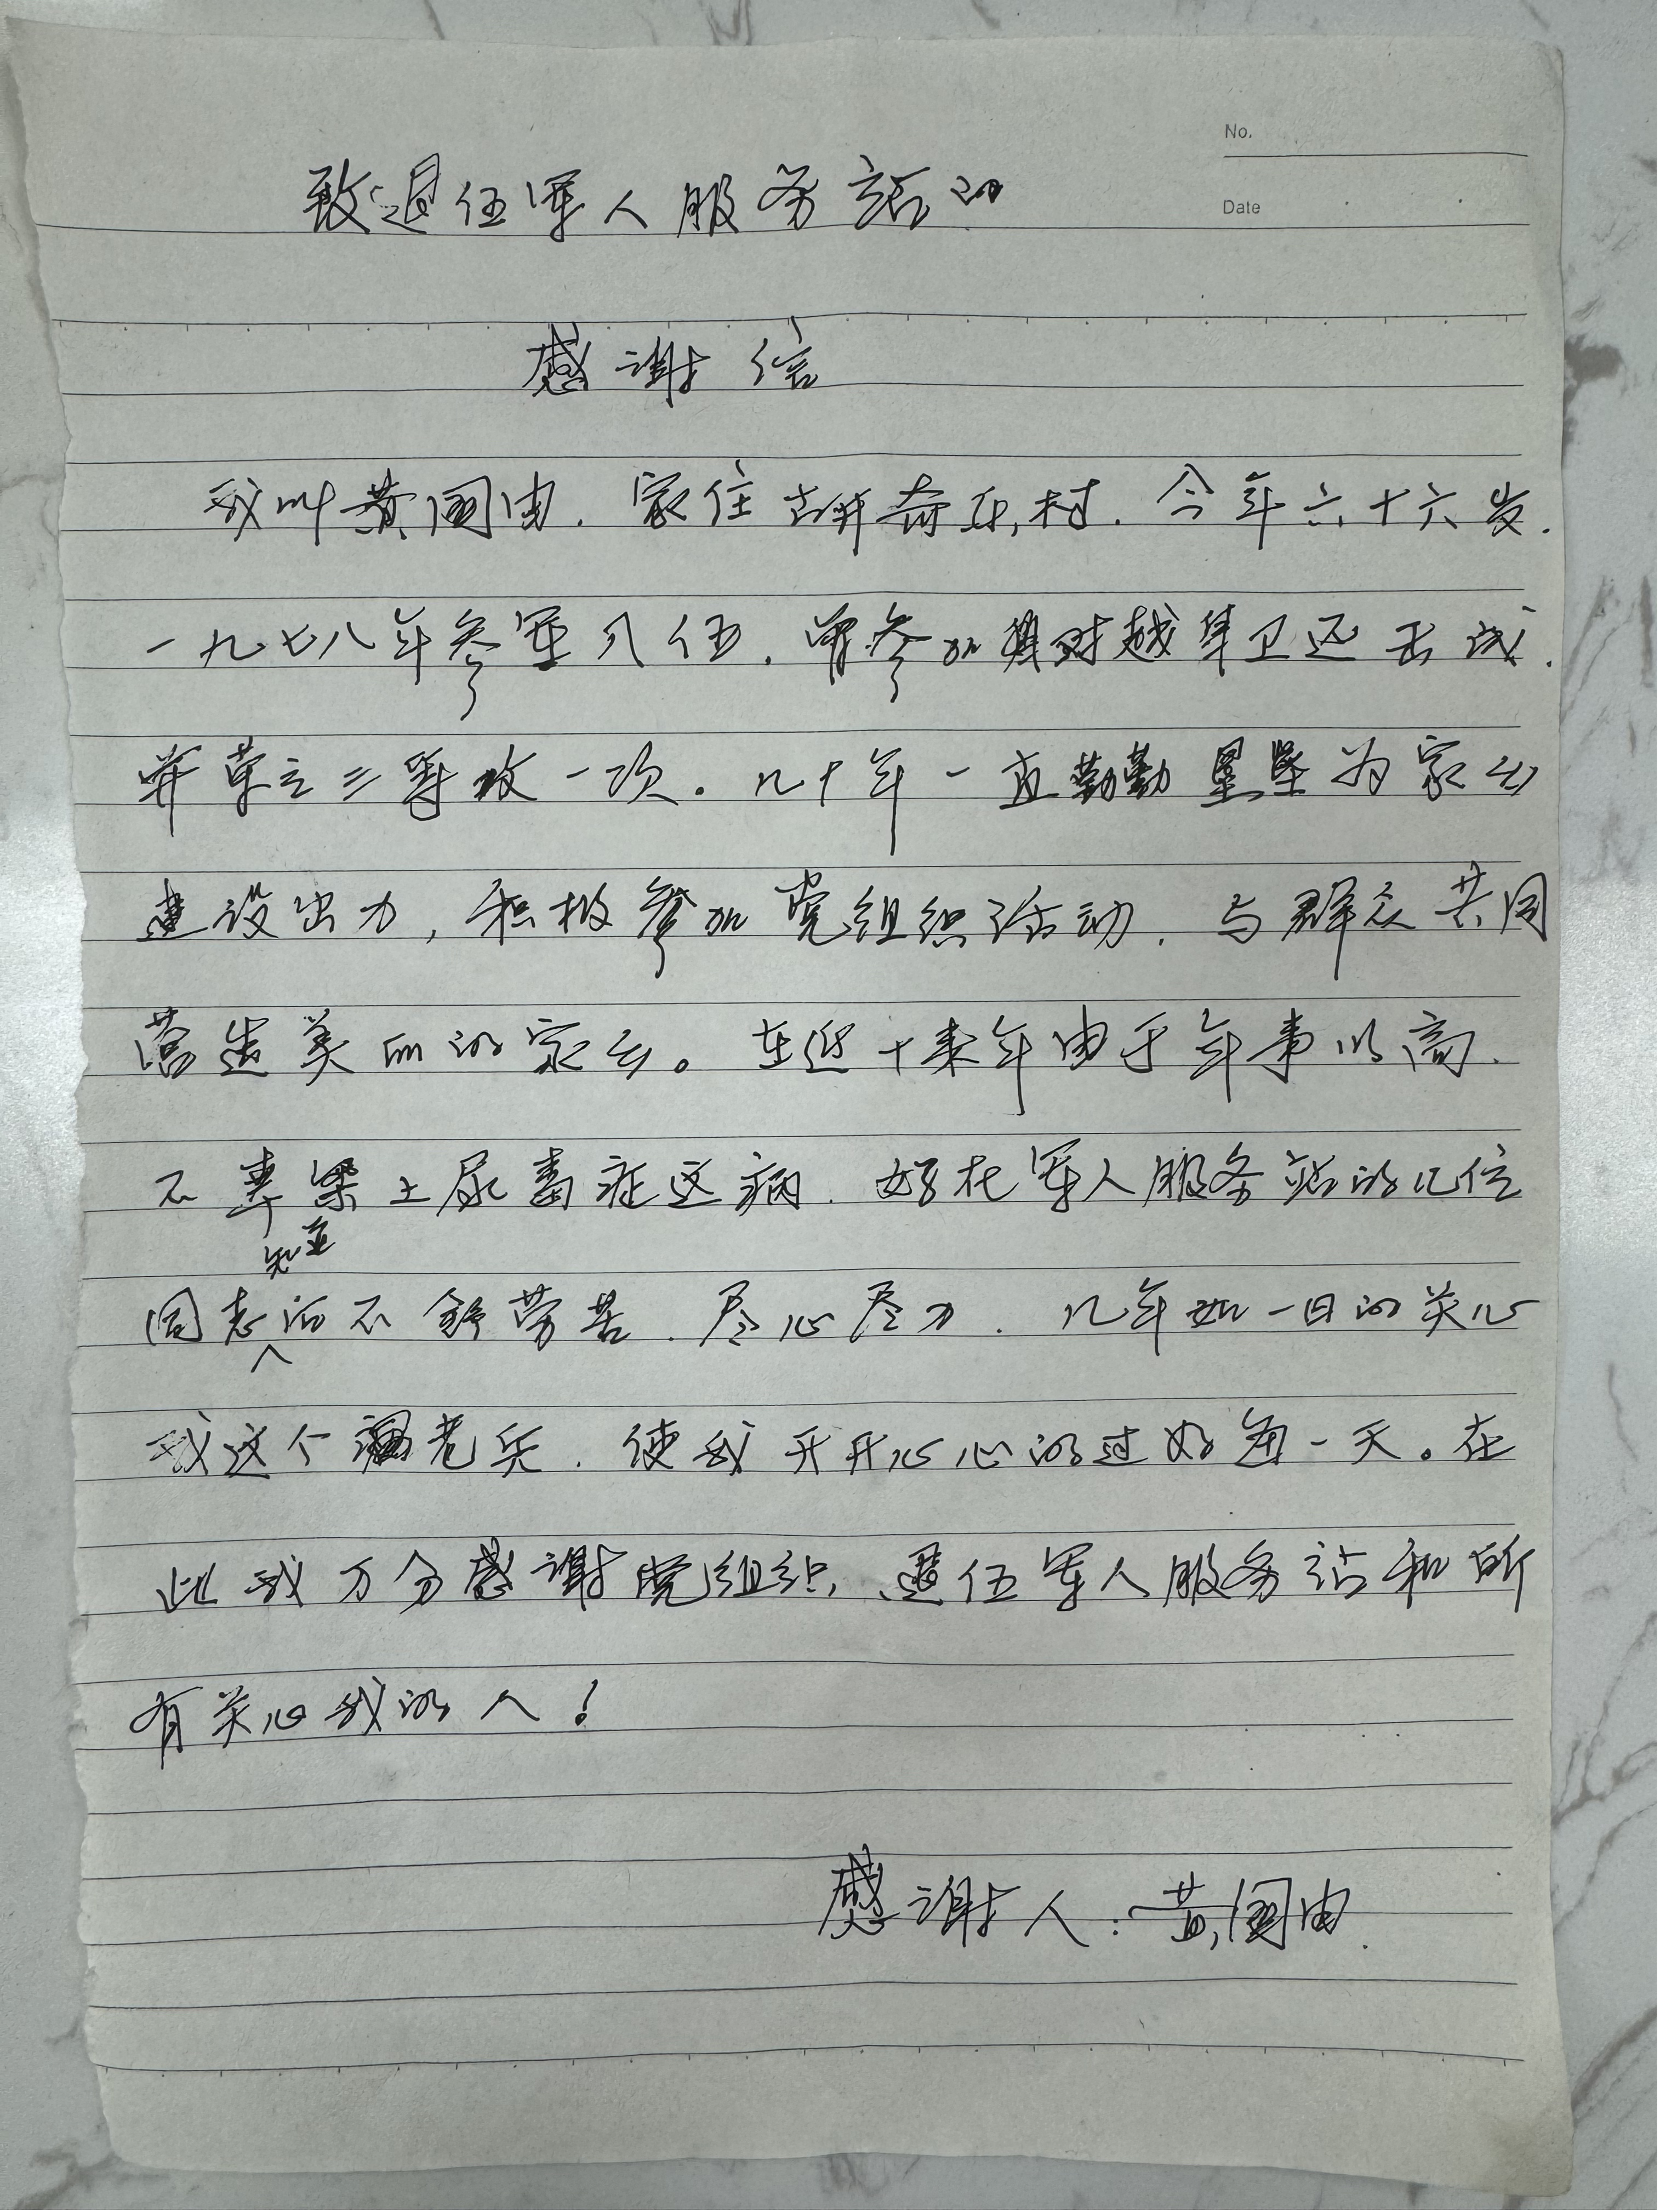 No.
致退伍军人服务站的
Date
感谢信
我叫黄国由.家住古井奇乐村.今年六十六岁.
一九七八年参军入伍.曾参加对越自卫还击战.
并荣立三等功一次。几十年一直勤勤垦垦为家乡
建设出力,积极参加党组织活动.与群众共同
营造美丽的家乡。在近十来年由于年事以高.
不幸染上尿毒症这病.好在军人服务站的几位
同志知并而不辞劳苦.尽心尽力.几年如一日的关心
我这个老兵.使我开开心心的过好每一天。在
此我万分感谢党组织,退伍军人服务站和所
有关心我的人!
感谢人:黄国由.